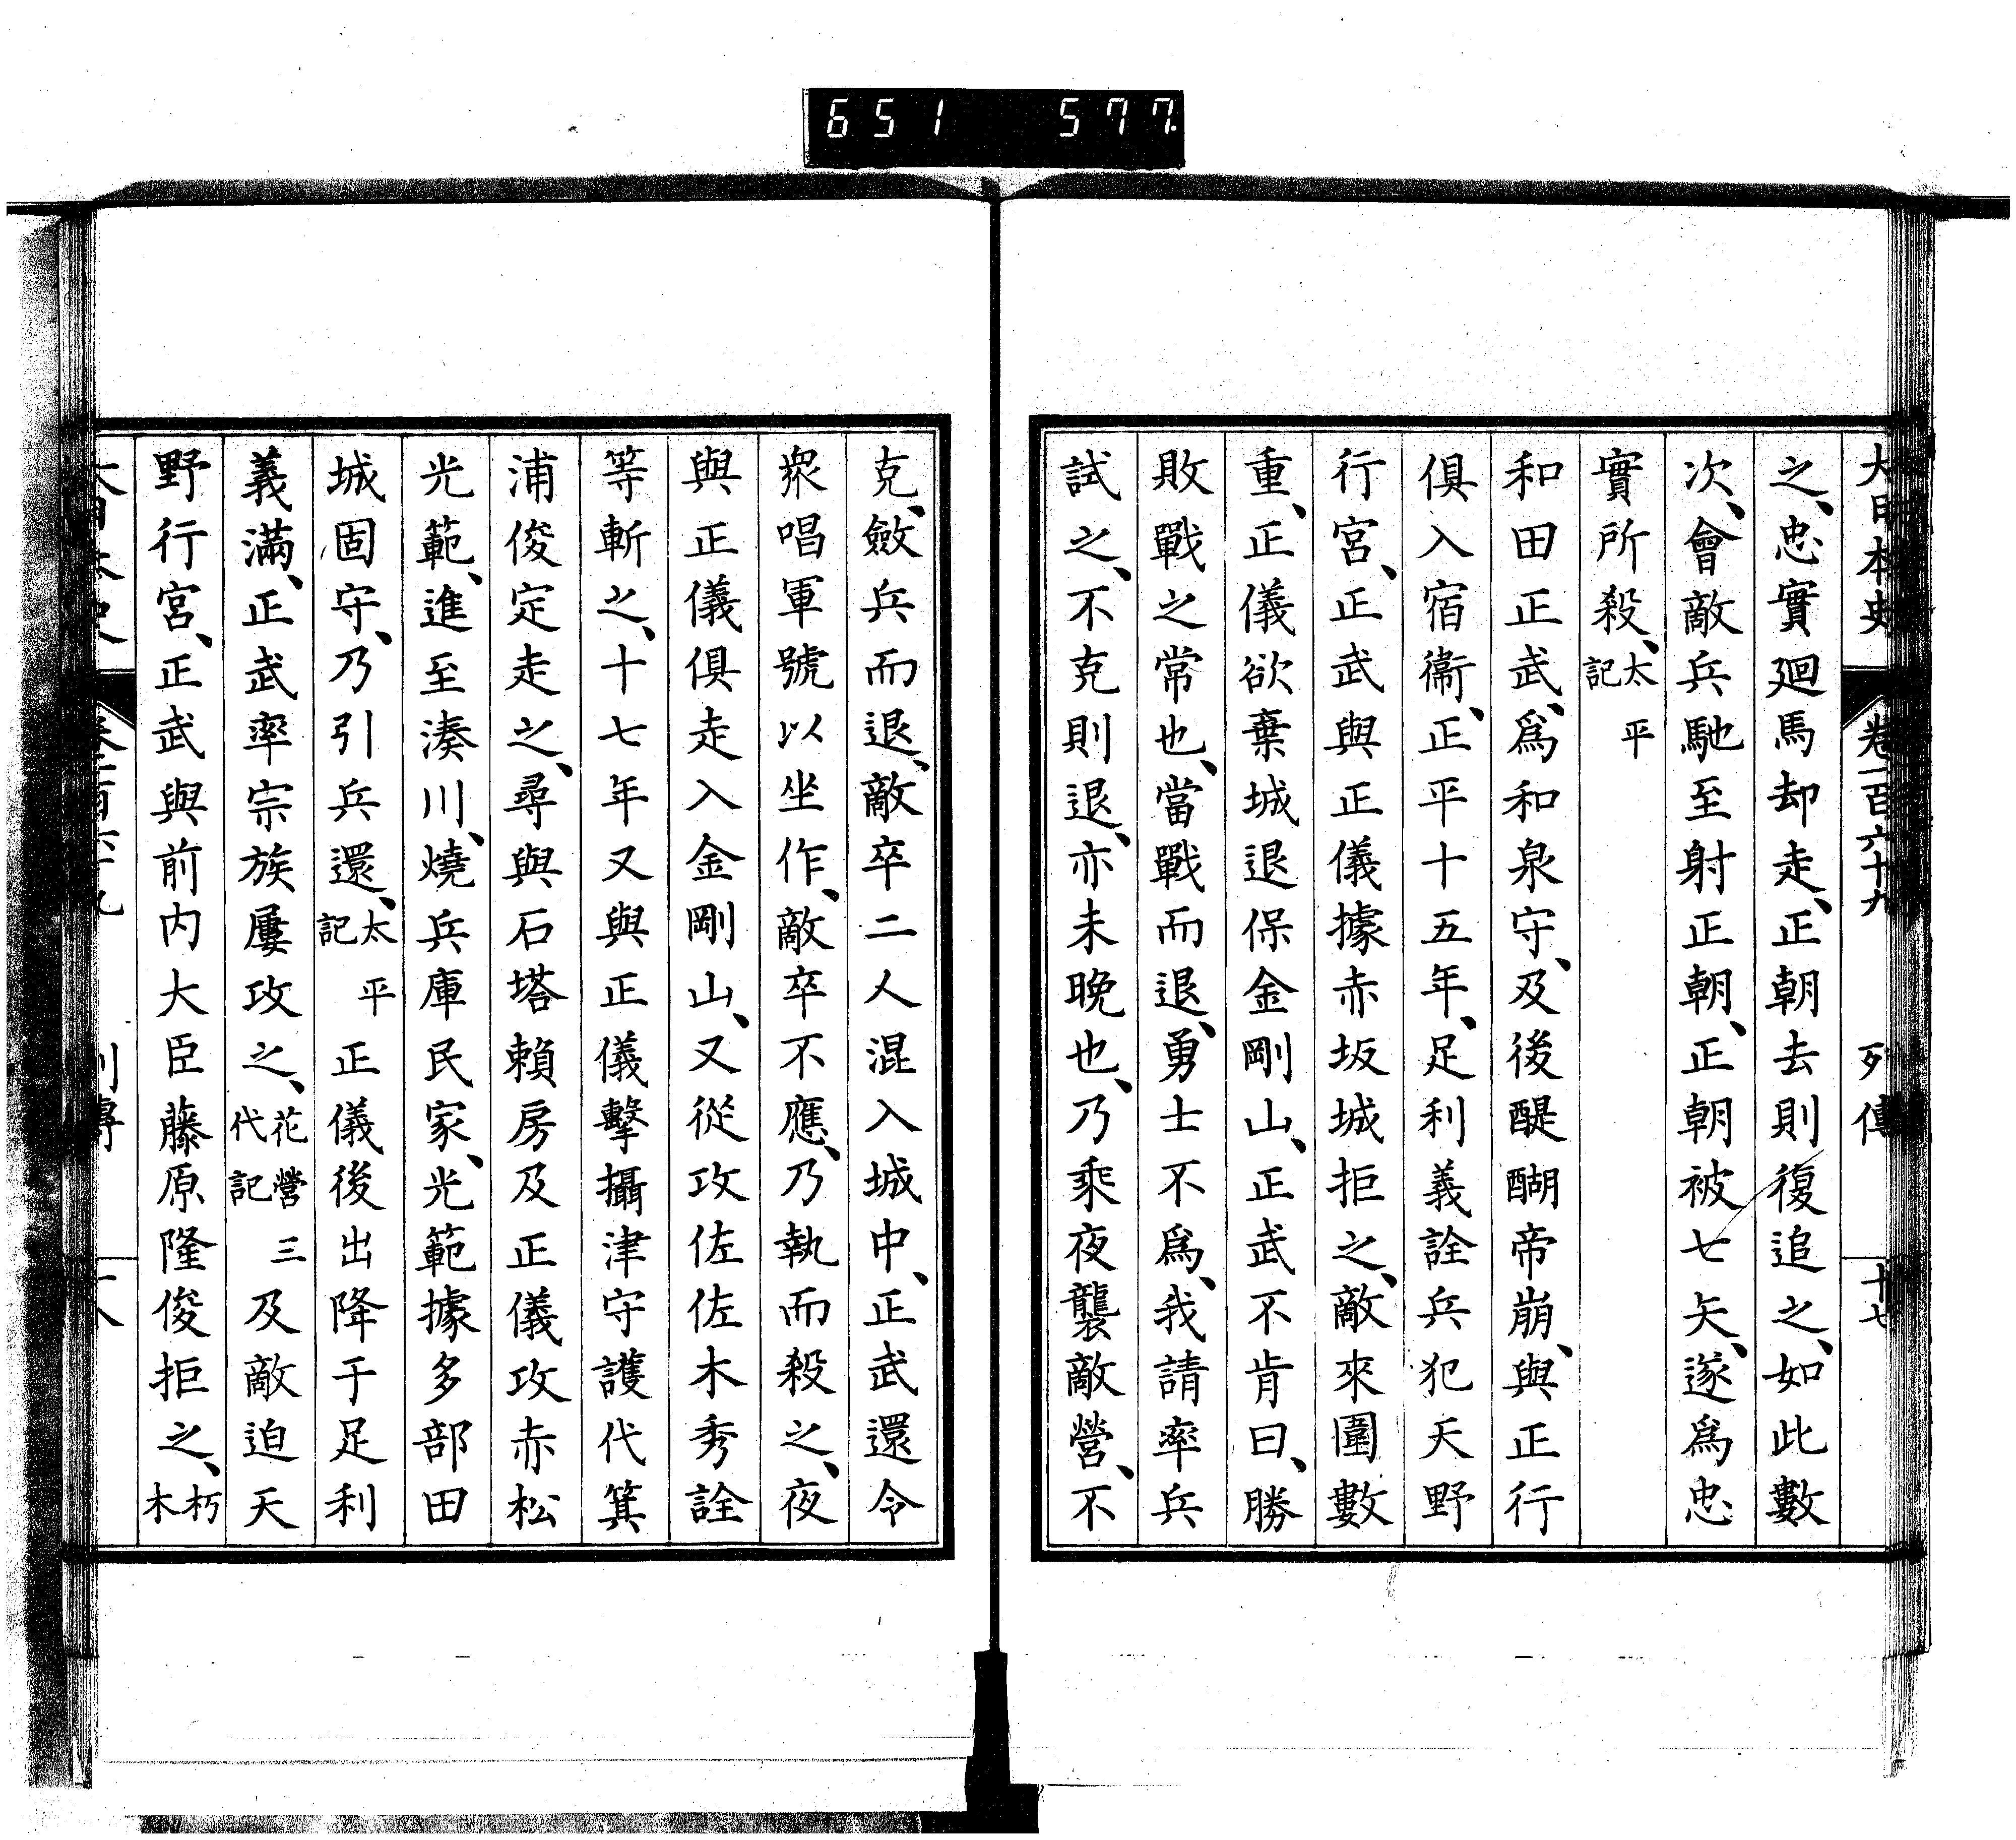 651 577.
大日本史 卷一百六十九 列傳 十七
之、忠實廻馬却走、正朝去則復追之、如此數
次、會敵兵馳至射正朝、正朝被七矢、遂爲忠
實所殺、太平記
和田正武、爲和泉守、及後醍醐帝崩、與正行
俱入宿衞、正平十五年、足利義詮兵犯天野
行宮、正武與正儀據赤坂城拒之、敵來圍數
重、正儀欲棄城退保金剛山、正武不肯曰、勝
敗戰之常也、當戰而退、勇士不爲、我請率兵
試之、不克則退、亦未晚也、乃乘夜襲敵營、不
克、斂兵而退、敵卒二人混入城中、正武還令
衆唱軍號以坐作、敵卒不應、乃執而殺之、夜
與正儀俱走入金剛山、又從攻佐佐木秀詮
等斬之、十七年又與正儀擊攝津守護代箕
浦俊定走之、尋與石塔賴房及正儀攻赤松
光範、進至湊川、燒兵庫民家、光範據多部田
城固守、乃引兵還、太平記 正儀後出降于足利
義滿、正武率宗族屢攻之、花營三代記 及敵迫天
野行宮、正武與前內大臣藤原隆俊拒之、朽木